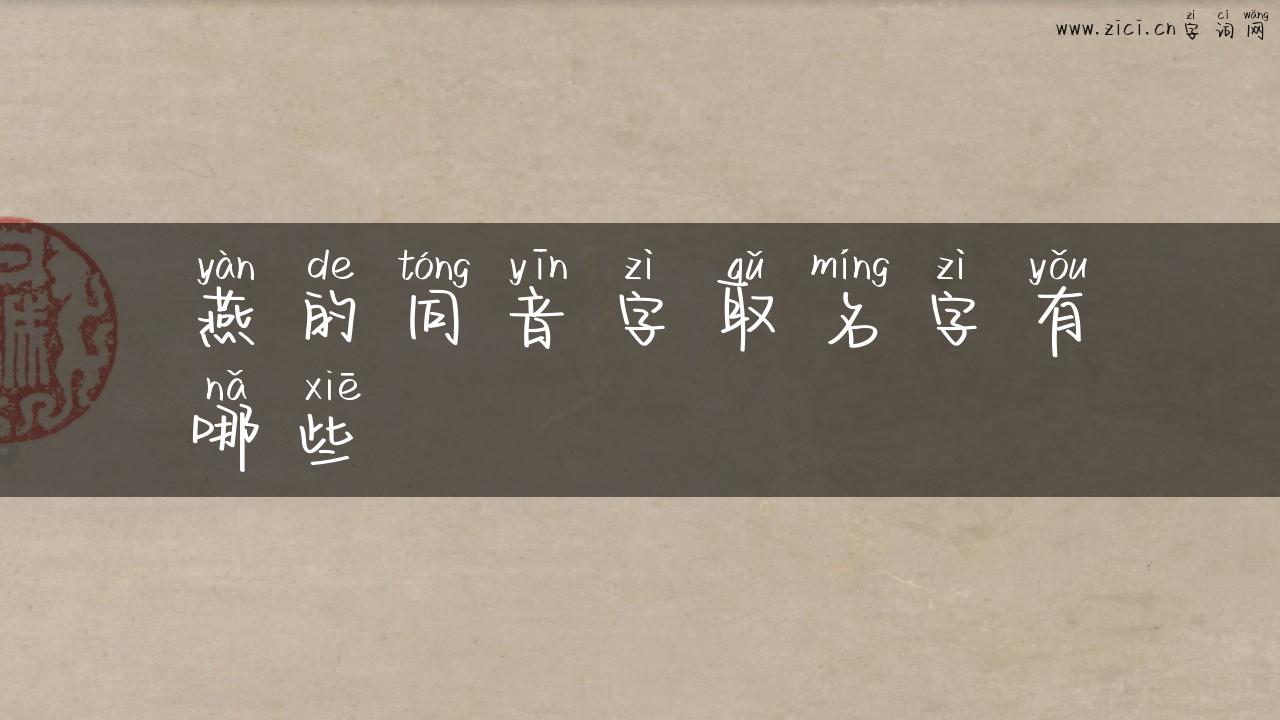 zì cí wǎng
www.zici.cn 字 词 网
yàn de tóng yīn zì qǔ míng zì yǒu
燕 的 同 音 字 取 名 字 有
nǎ xiē
哪 些